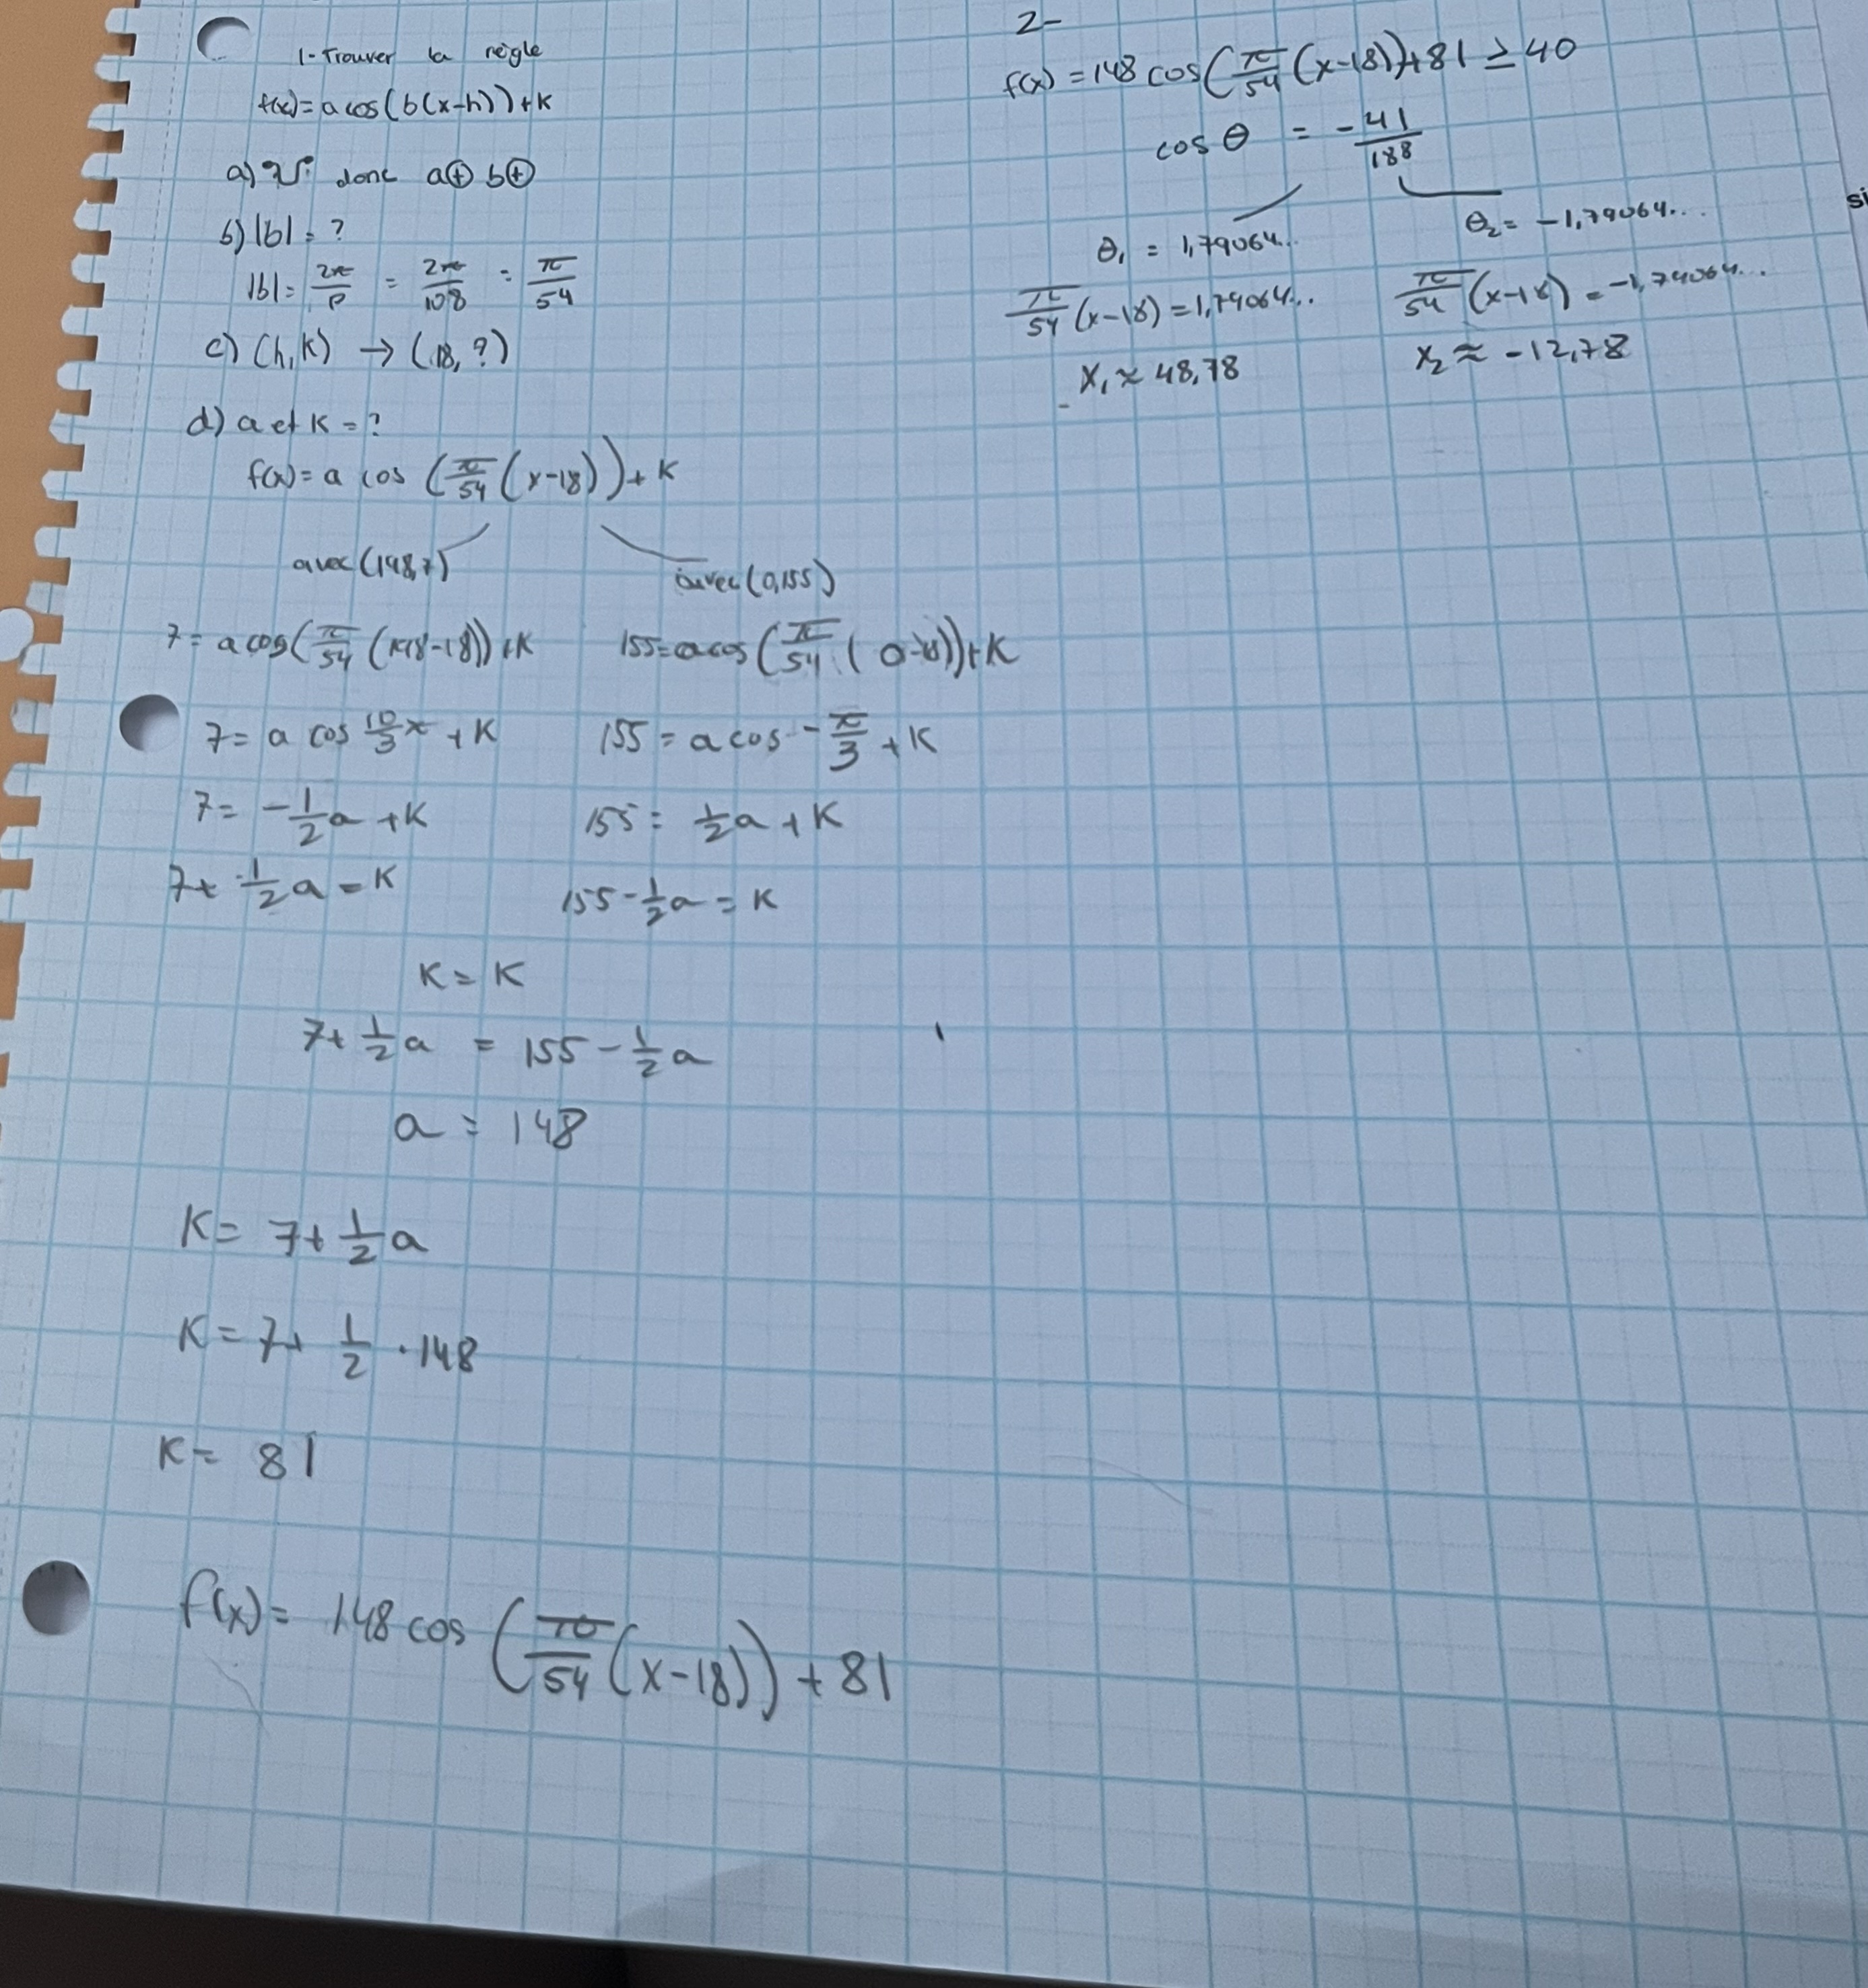 1-Trouver la règle
f(x)= a cos(b(x-h))+K
a) donc a⊕ b⊕
b) |b| = ?
|b| = 2π/P = 2π/108 = π/54
c) (h,K) → (18, ?)
d) a et K = ?
f(x)= a cos (π/54 (x-18)) + K
avec (198,7) avec (0,155)
7 = a cos(π/54 (198-18)) + K 155 = a cos (π/54 (0-18)) + K
7 = a cos 10/3 π + K 155 = a cos - π/3 + K
7 = -1/2 a + K 155 = 1/2 a + K
7 + 1/2 a = K 155 - 1/2 a = K
K = K
7 + 1/2 a = 155 - 1/2 a
a = 148
K = 7 + 1/2 a
K = 7 + 1/2 · 148
K = 81
f(x) = 148 cos (π/54 (x-18)) + 81
2-
f(x) = 148 cos(π/54 (x-18)) + 81 ≥ 40
cos θ = -41/188
θ₁ = 1,79064... θ₂ = -1,79064...
π/54 (x-18) = 1,79064... π/54 (x-18) = -1,79064...
x₁ ≈ 48,78 x₂ ≈ -12,78
si